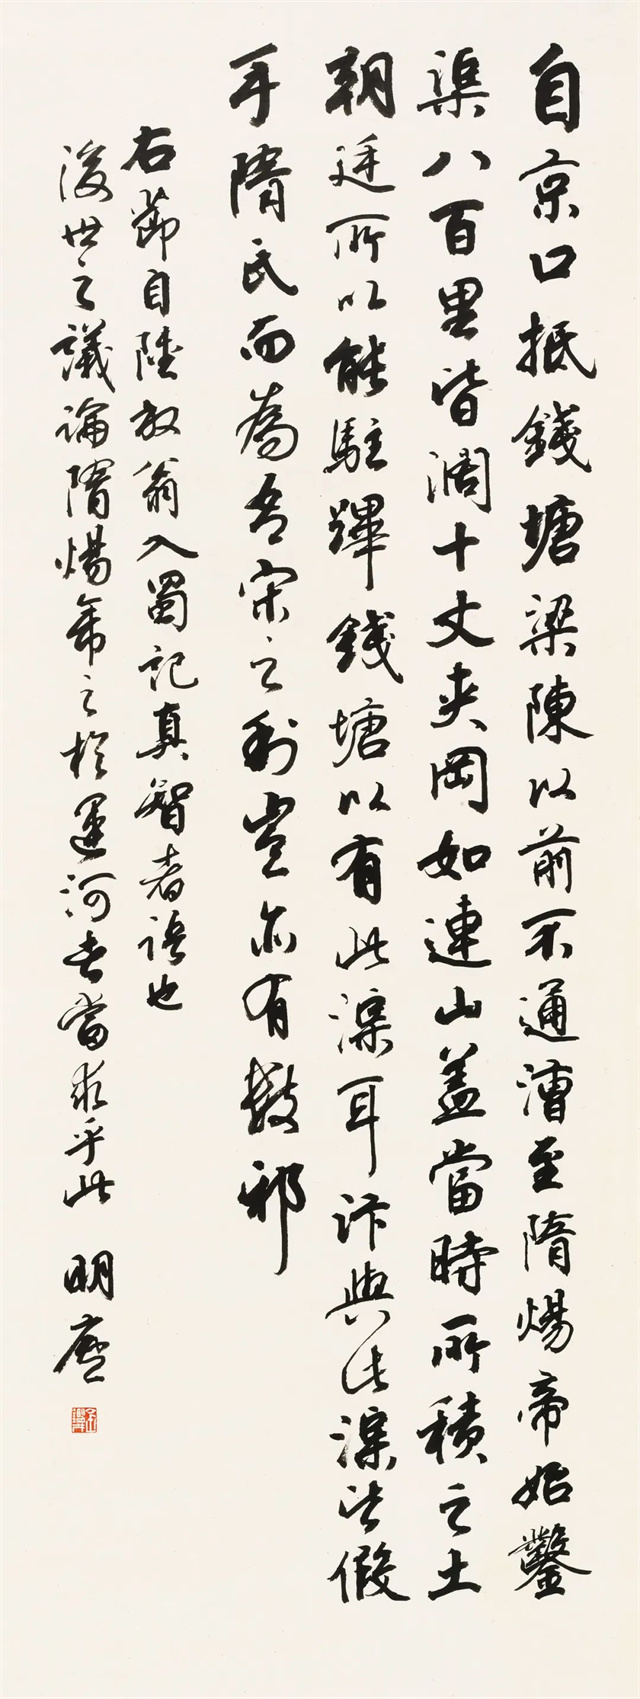 自京口抵錢塘梁陳以前不通漕至隋煬帝始鑿
渠八百里皆濶十丈夾岡如連山盖當時所積之土
朝廷所以能駐蹕錢塘以有此渠耳汴與此渠皆假
手隋氏而為吾宋之利豈亦有數邪
右節自陸放翁入蜀記真智者語也
後世之議論隋煬帝之於運河者當求乎此 明廬